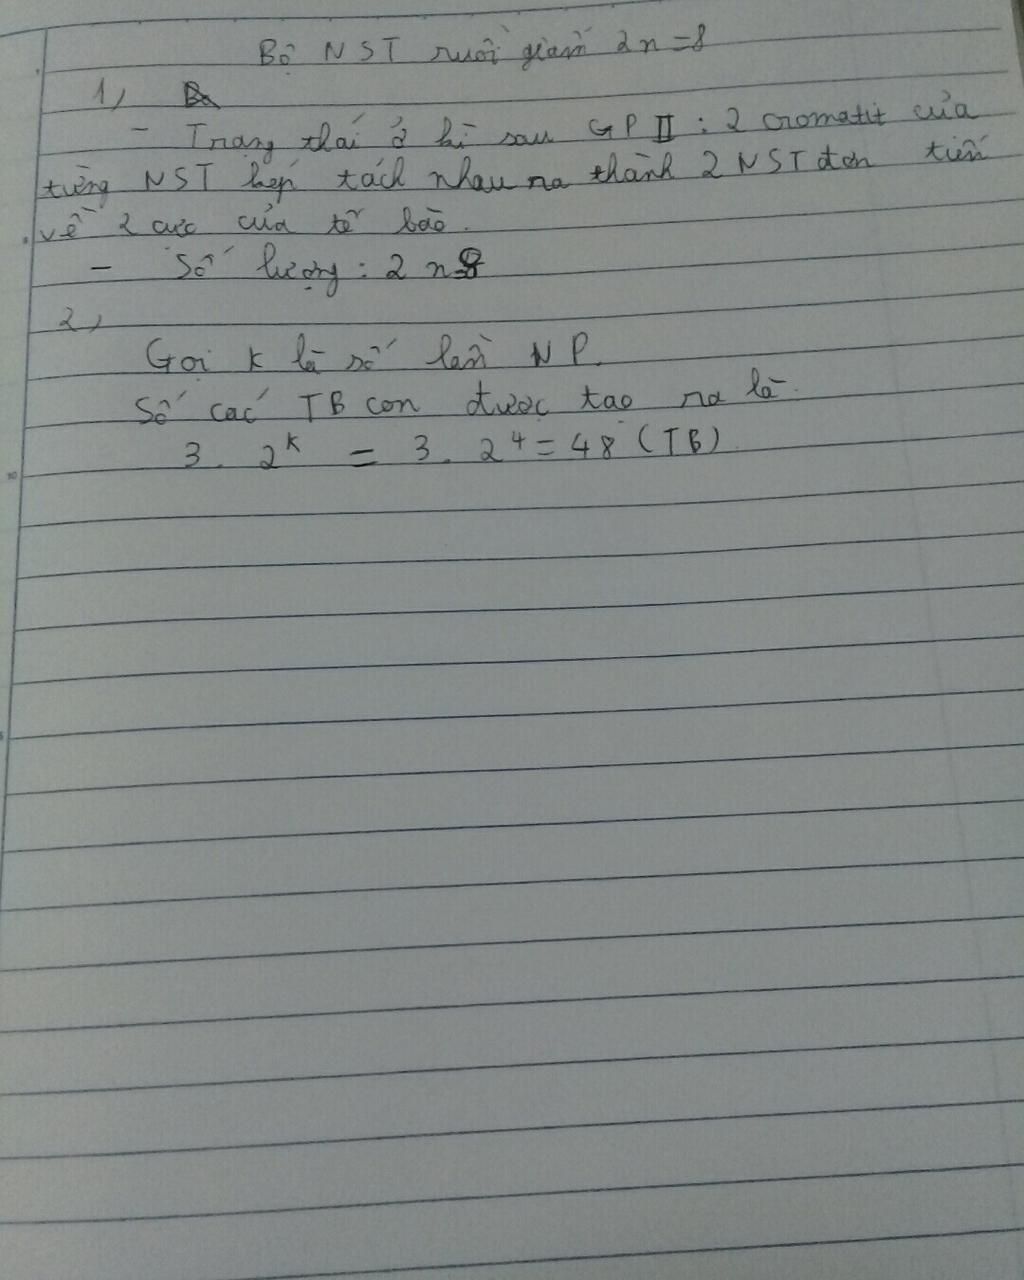 Bộ NST ruồi giấm 2n = 8
1,
- Trạng thái ở kì sau GP II : 2 cromatit của
từng NST kép tách nhau ra thành 2 NST đơn tiến
về 2 cực của tế bào.
- Số lượng : 2n 8
2,
Gọi k là số lần NP.
Số các TB con được tạo ra là.
3. 2^k = 3. 2^4 = 48 (TB)